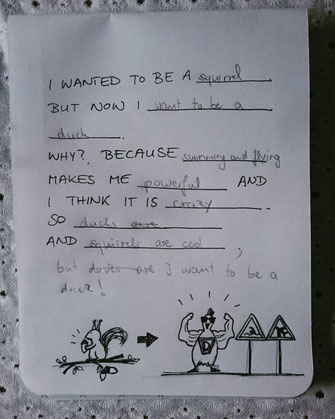 I WANTED TO BE A squirrel
BUT NOW I want to be a
duck.
WHY? BECAUSE swimming and flying
MAKES ME powerful AND
I THINK IT IS crazy.
SO ducks are
AND squirrels are cool;
but I want to be a
duck!
D